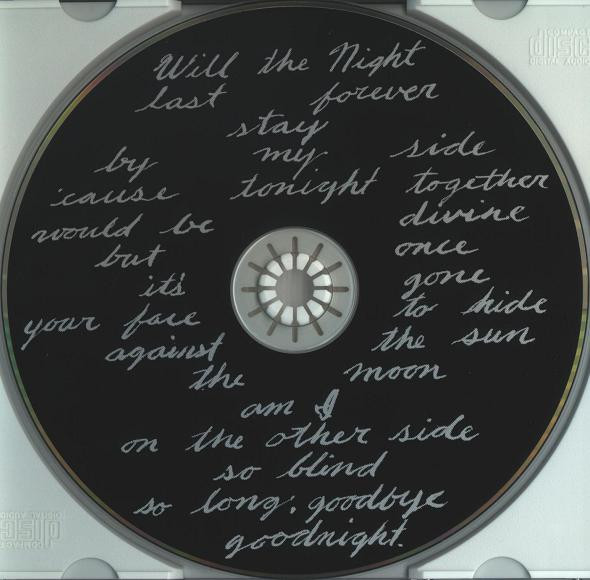 Will the Night
last forever
stay
by my side
'cause tonight together
would be divine
but once
it's gone
your face to hide
against the sun
the moon
am I
on the other side
so blind
so long, goodbye
goodnight.
disc
COMPACT
DIGITAL AUDIO
disc
COMPACT
DIGITAL AUDIO